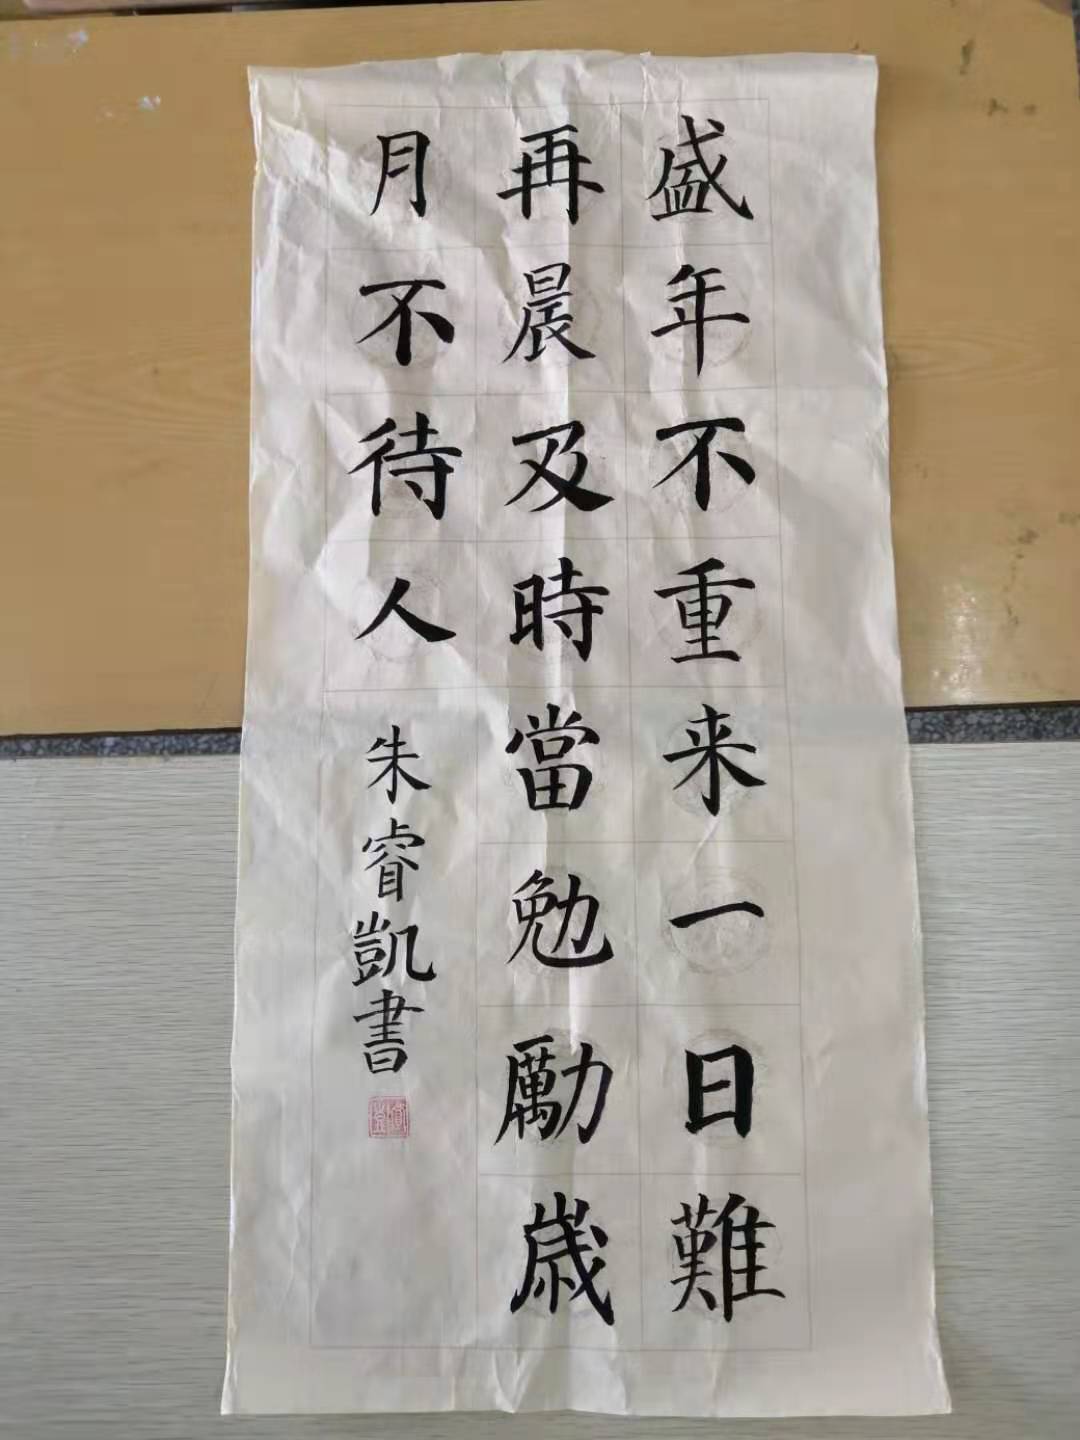 盛年不重来一日難
再晨及時當勉勵歲
月不待人
朱睿凱書